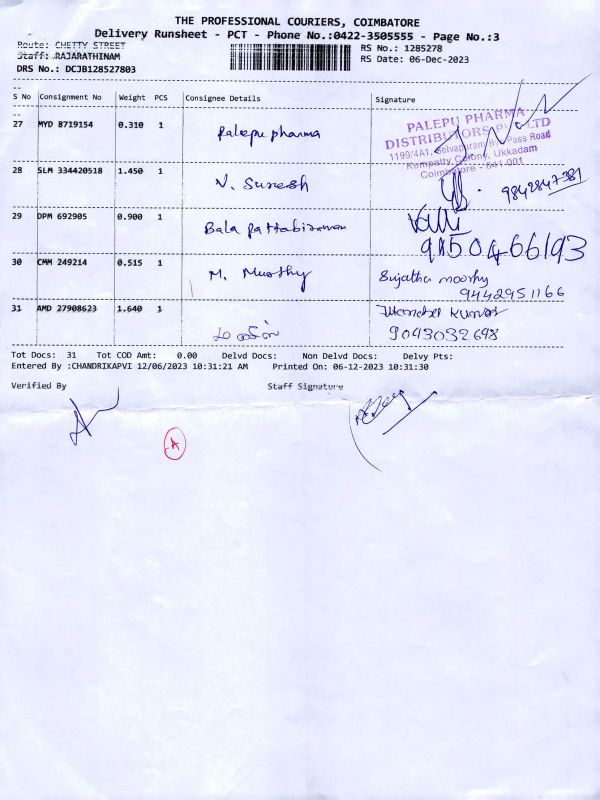 THE PROFESSIONAL COURIERS, COIMBATORE
Delivery Runsheet - PCT - Phone No.:0422-3505555 - Page No.:3
Route: CHETTY STREET RS No.: 1285278
Staff: RAJARATHINAM RS Date: 06-Dec-2023
DRS No.: DCJB128527803
S No Consignment No Weight PCS Consignee Details Signature
27 MYD 8719154 0.310 1 Palepu pharma
PALEPU PHARMA
DISTRIBUTORS PVT LTD
1199/4A1, Selvapuram By Pass Road
Kempatty Colony, Ukkadam
Coimbatore - 641 001
28 SLM 334420518 1.450 1 N. Suresh 9842847381
29 DPM 692905 0.900 1 Bala Pattabiraman
30 CMM 249214 0.515 1 M. Murthy Sujatha moorhy
9442951166
31 AMD 27908623 1.640 1 Kumar
9043032698
Tot Docs: 31 Tot COD Amt: 0.00 Delvd Docs: Non Delvd Docs: Delvy Pts:
Entered By :CHANDRIKAPVI 12/06/2023 10:31:21 AM Printed On: 06-12-2023 10:31:30
Verified By Staff Signature
A